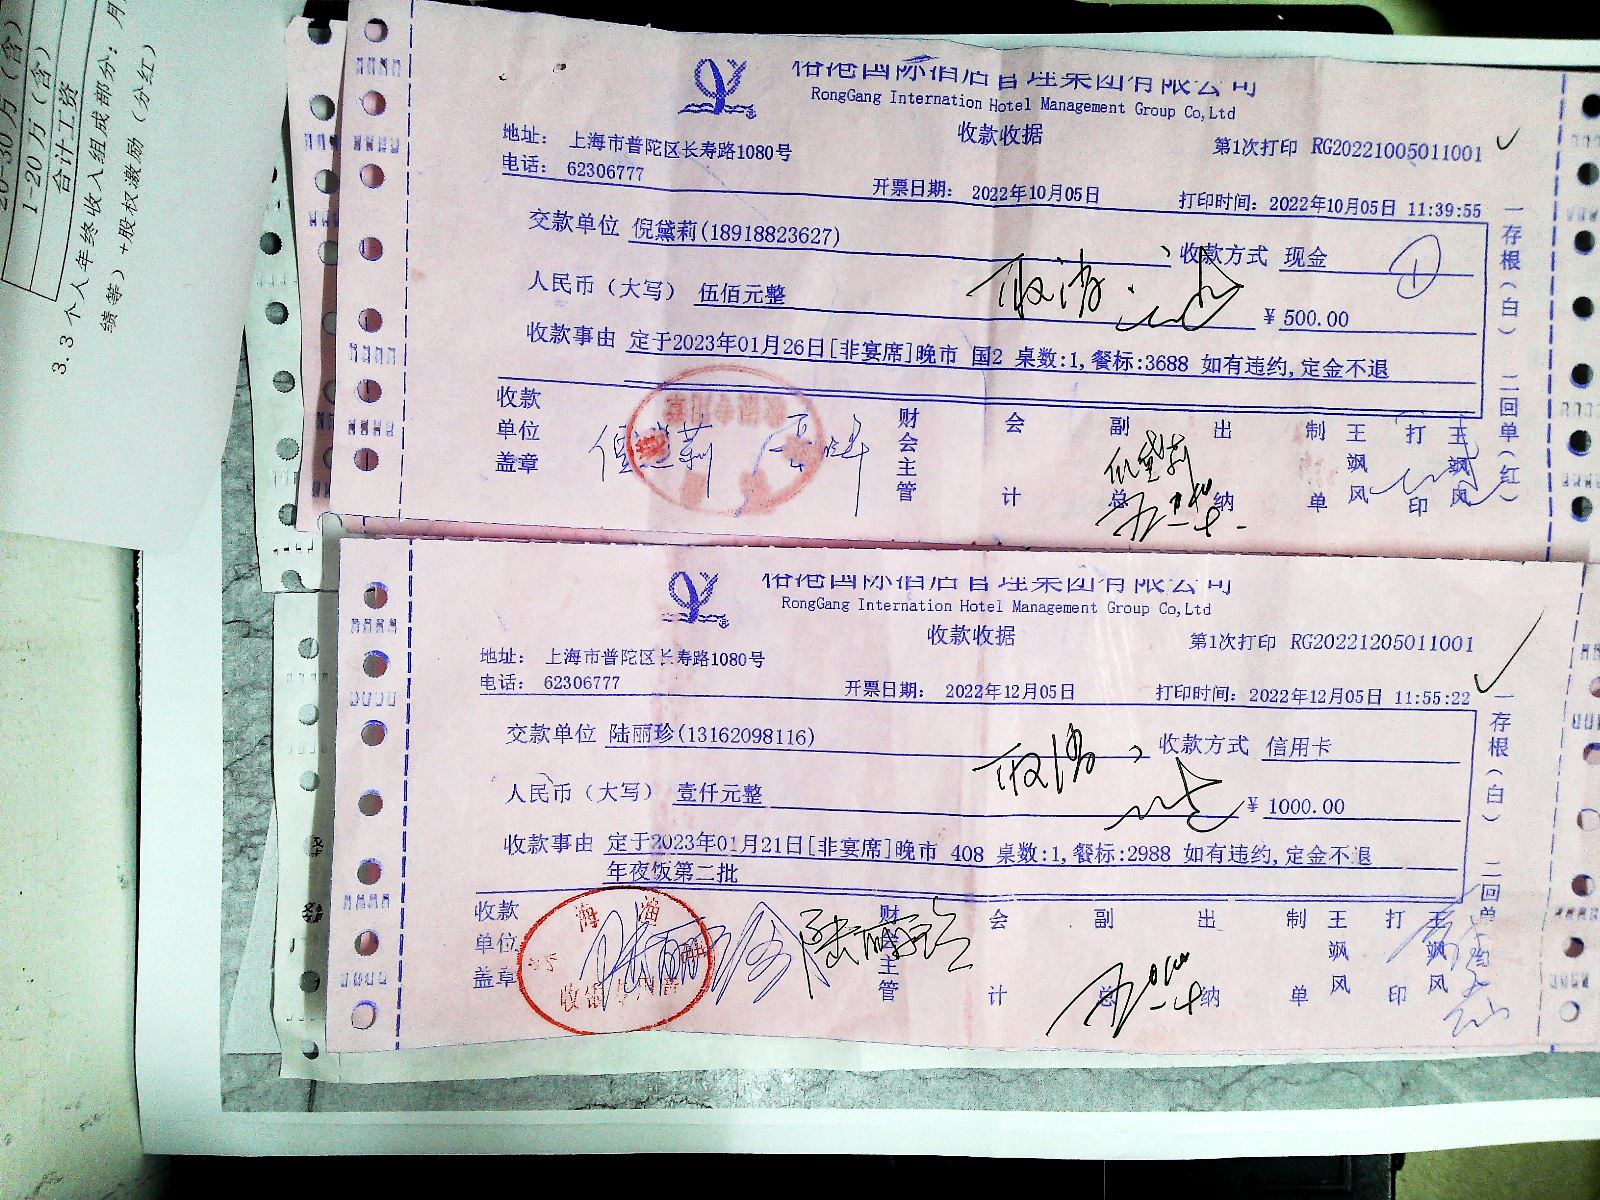 20-30万（含）
1-20万（含）
合计工资
3.3 个人年终收入组成部分：月
绩等）+股权激励（分红）
裕港国际酒店管理集团有限公司
RongGang Internation Hotel Management Group Co,Ltd
收款收据
地址： 上海市普陀区长寿路1080号
第1次打印 RG20221005011001
电话： 62306777
开票日期： 2022年10月05日
打印时间：2022年10月05日 11:39:55
交款单位 倪黛莉(18918823627)
收款方式 现金
1
人民币（大写） 伍佰元整
取消
¥ 500.00
收款事由 定于2023年01月26日[非宴席]晚市 国2 桌数:1,餐标:3688 如有违约,定金不退
收款单位盖章
倪黛莉
财会主管
会计
副总
倪黛莉
出纳
制单
王飒风
打印
王飒风
一存根（白） 二回单（红）
裕港国际酒店管理集团有限公司
RongGang Internation Hotel Management Group Co,Ltd
收款收据
第1次打印 RG20221205011001
地址： 上海市普陀区长寿路1080号
电话： 62306777
开票日期： 2022年12月05日
打印时间：2022年12月05日 11:55:22
交款单位 陆丽珍(13162098116)
收款方式 信用卡
取消
人民币（大写） 壹仟元整
¥ 1000.00
收款事由 定于2023年01月21日[非宴席]晚市 408 桌数:1,餐标:2988 如有违约,定金不退
年夜饭第二批
收款单位盖章
陆丽珍
陆丽珍
财会主管
会计
副总
出纳
制单
王飒风
打印
王飒风
一存根（白） 二回单